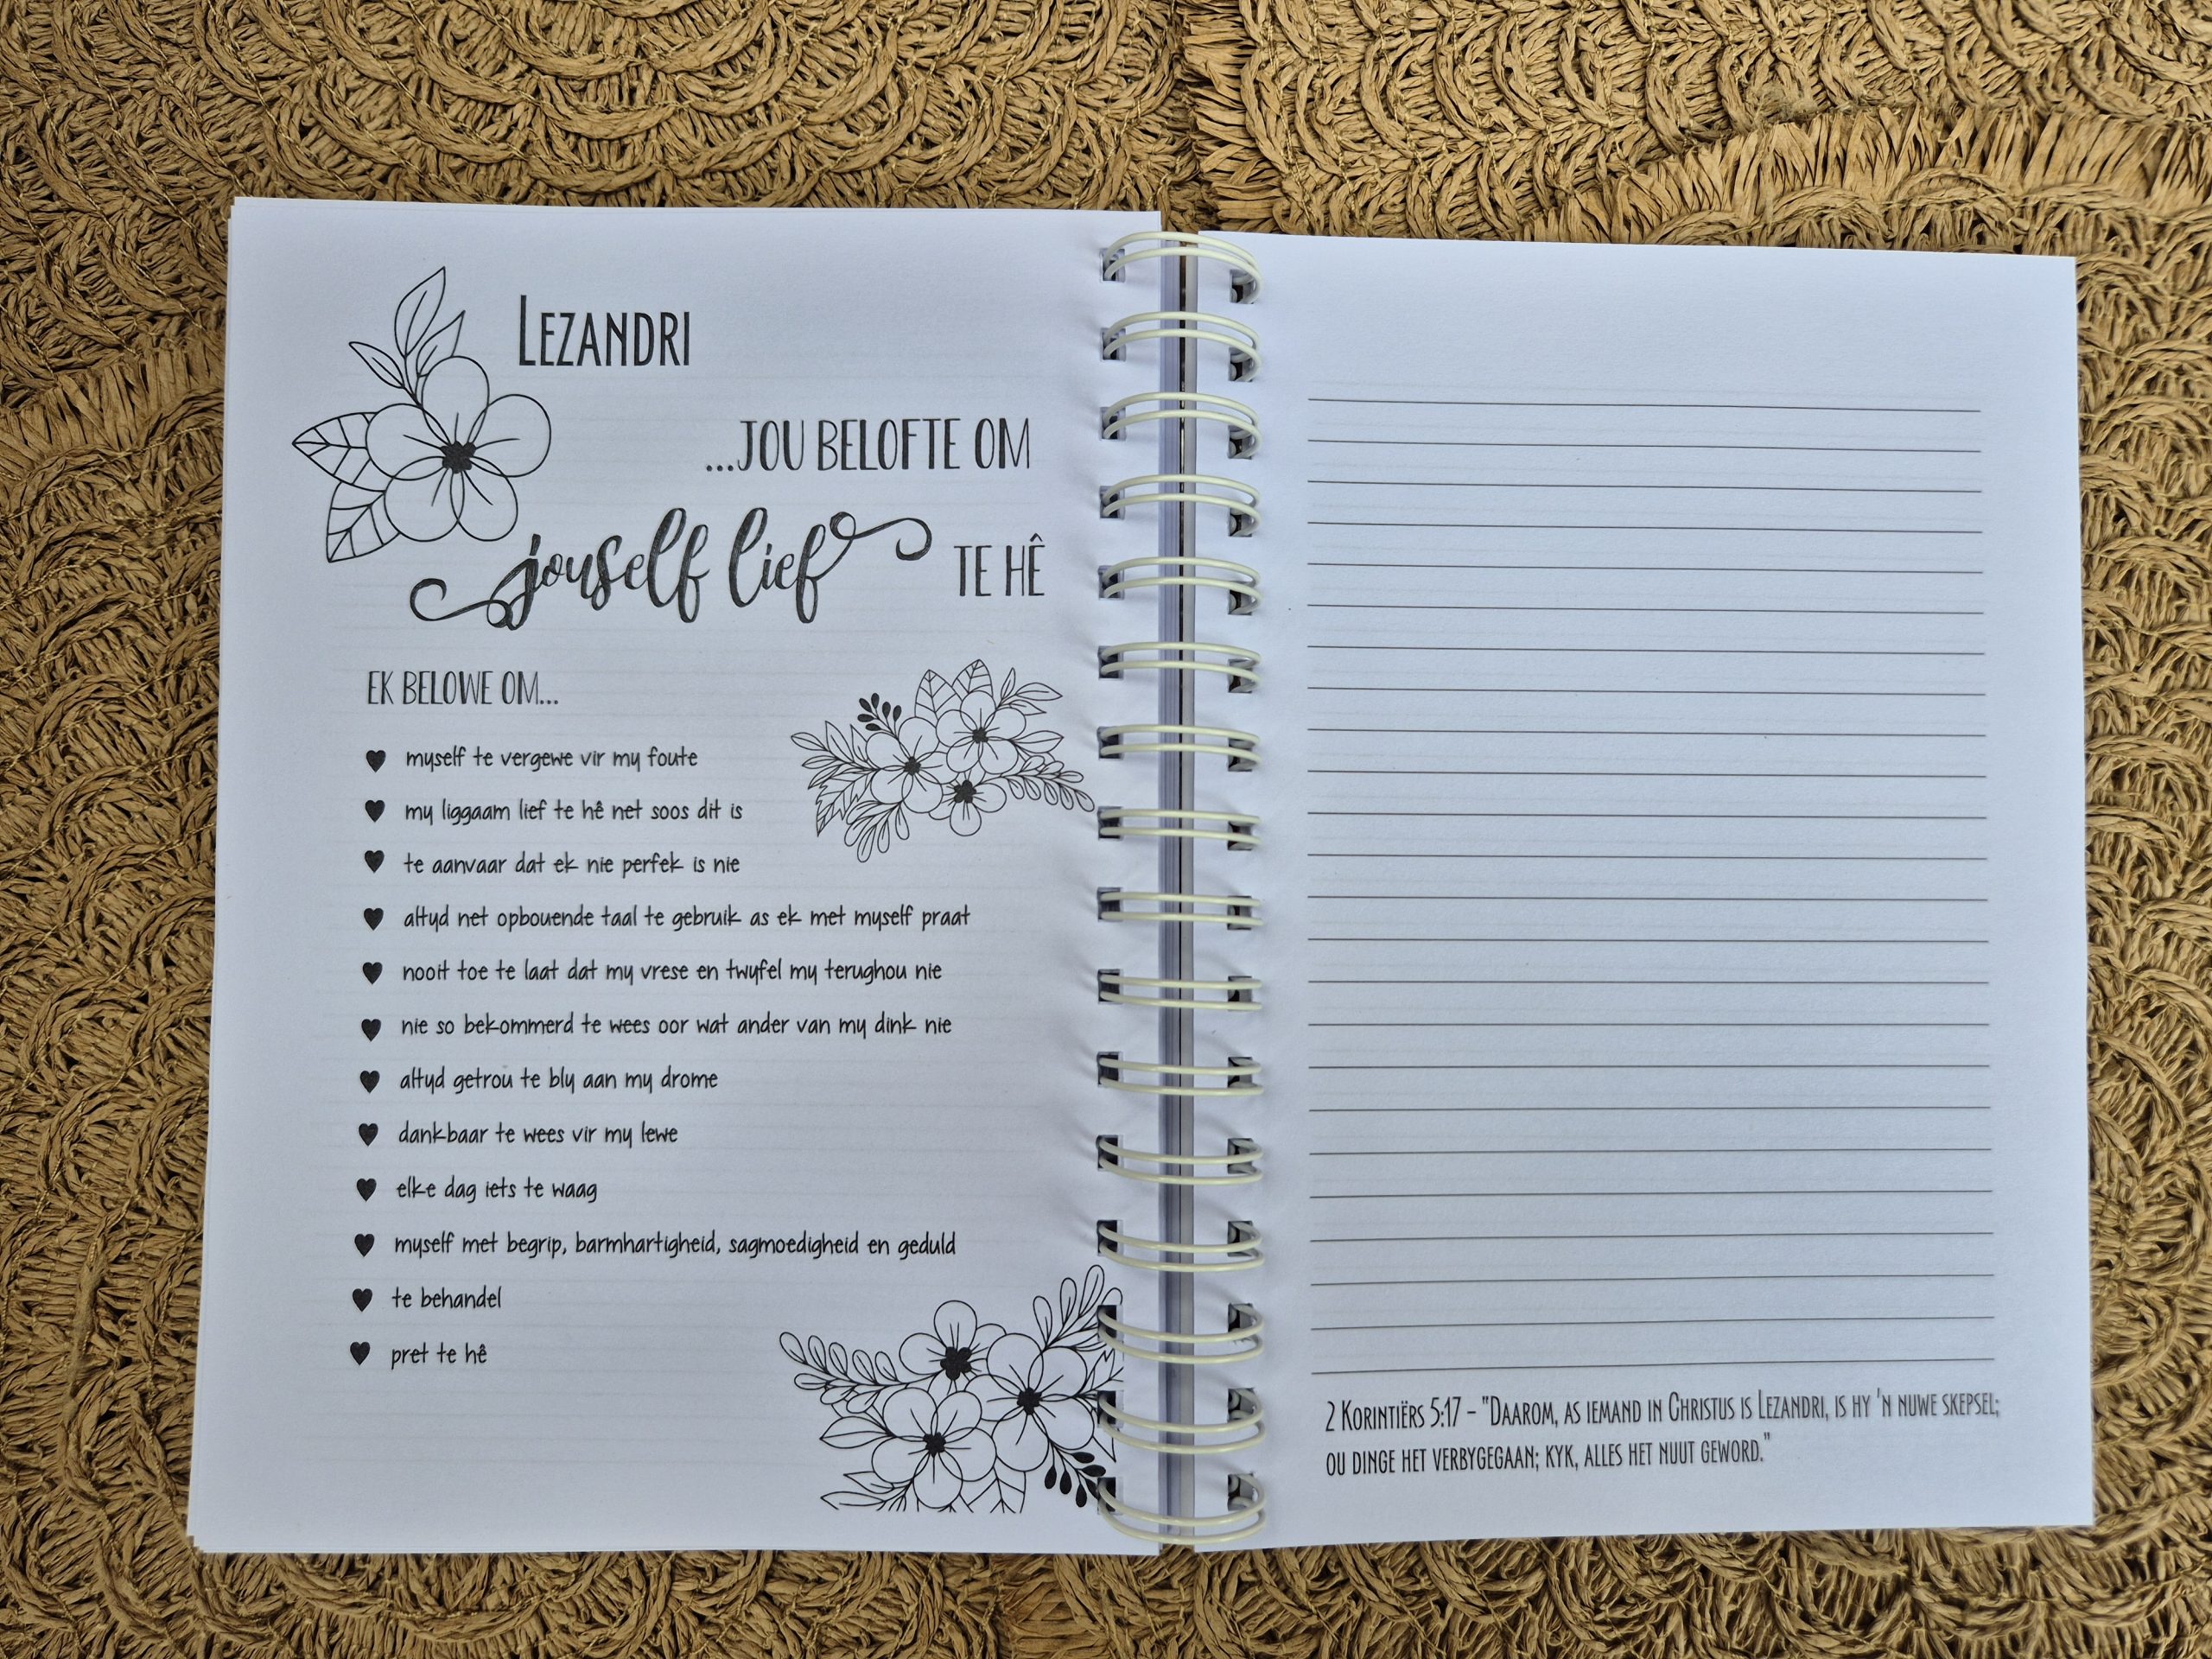 LEZANDRI
...JOU BELOFTE OM
jouself lief TE HÊ
EK BELOWE OM...
myself te vergewe vir my foute
my liggaam lief te hê net soos dit is
te aanvaar dat ek nie perfek is nie
altyd net opbouende taal te gebruik as ek met myself praat
nooit toe te laat dat my vrese en twyfel my terughou nie
nie so bekommerd te wees oor wat ander van my dink nie
altyd getrou te bly aan my drome
dankbaar te wees vir my lewe
elke dag iets te waag
myself met begrip, barmhartigheid, sagmoedigheid en geduld
te behandel
pret te hê
2 KORINTIËRS 5:17 – "DAAROM, AS IEMAND IN CHRISTUS IS LEZANDRI, IS HY 'N NUWE SKEPSEL;
OU DINGE HET VERBYGEGAAN; KYK, ALLES HET NUUT GEWORD."